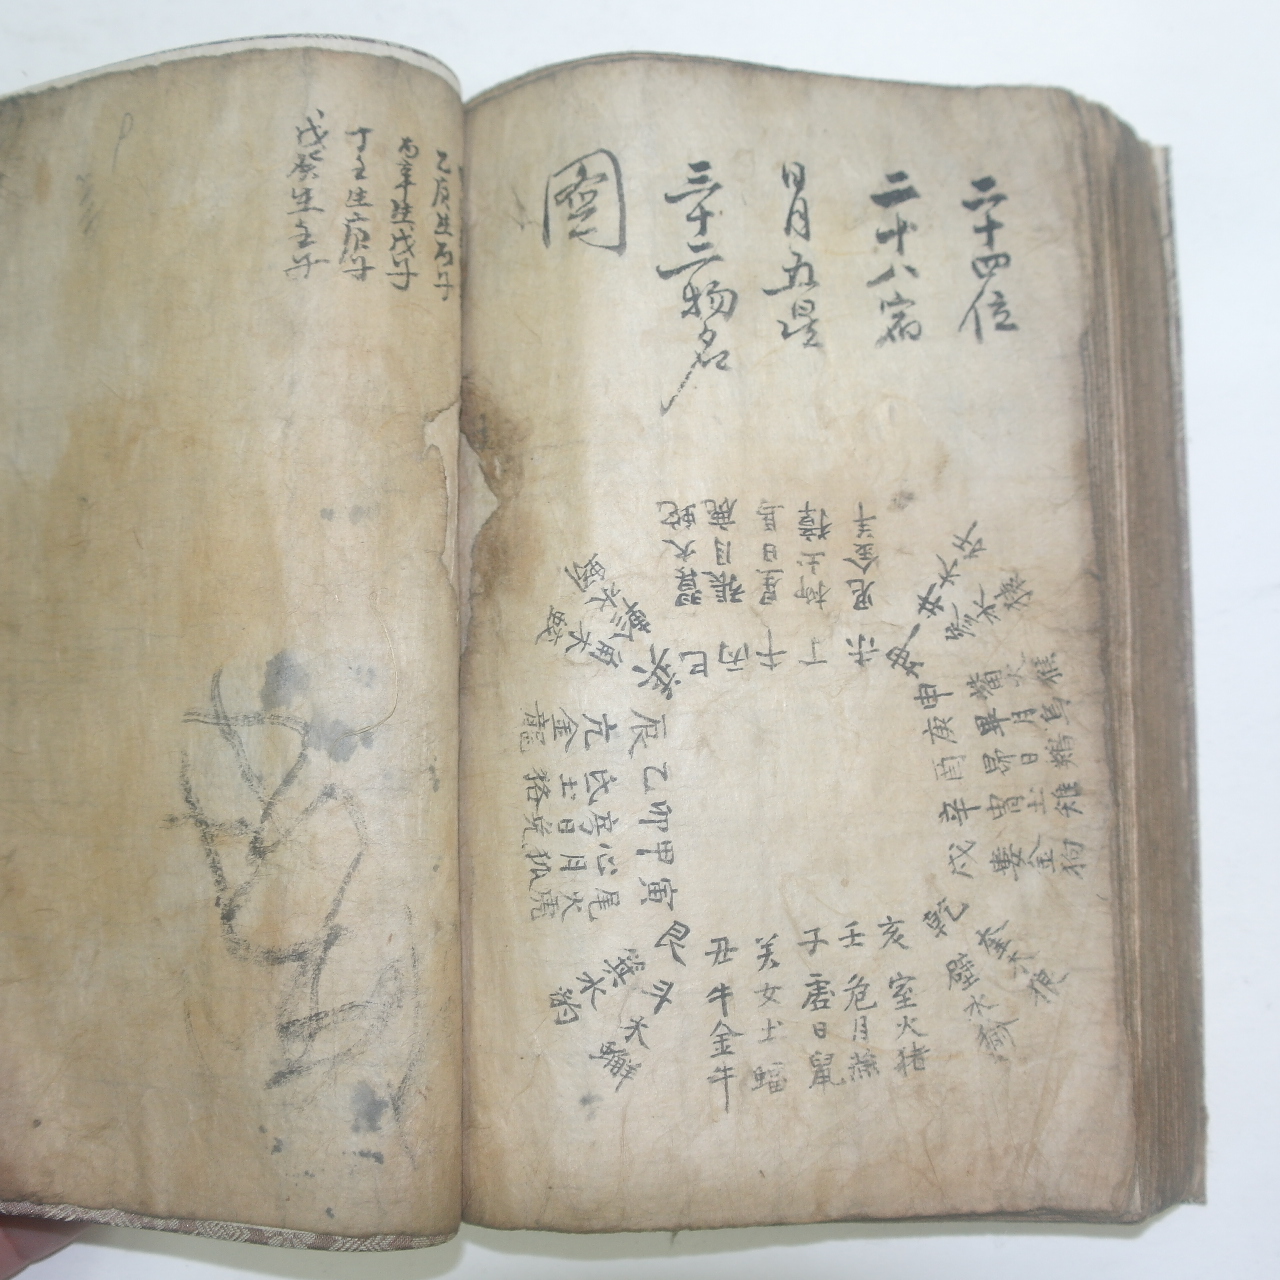 二十四位
二十八宿
日月五星
三十二物名
圖
未 丁 午 丙 巳
鬼金羊
柳土獐
星日馬
張月鹿
翼火蛇
軫水
辰 乙 卯 甲 寅
亢金龍
氐土狢
心月狐
尾火虎
箕水豹
艮
丑 子 壬 亥
斗木
牛金牛
女土蝠
日鼠
危月燕
室火猪
壁水
乾
奎木
戌 辛 酉 庚 申
婁金狗
胃土雉
昴日鷄
畢月烏
火
參水
井木
乙庚生丙子
丙辛生戊子
丁壬生庚子
戊癸生壬子